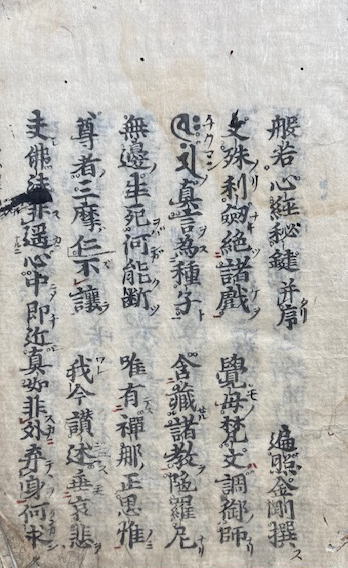 般若心經秘鍵并序 遍照金剛撰
文殊利劔絶諸戲 覺母梵文調御師
真言為種子 含藏諸教陀羅尼
無邊生死何能斷 唯有禪那正思惟
尊者三摩仁不讓 我今讃述垂哀悲
夫佛法非遥心中即近真如非外弃身何求